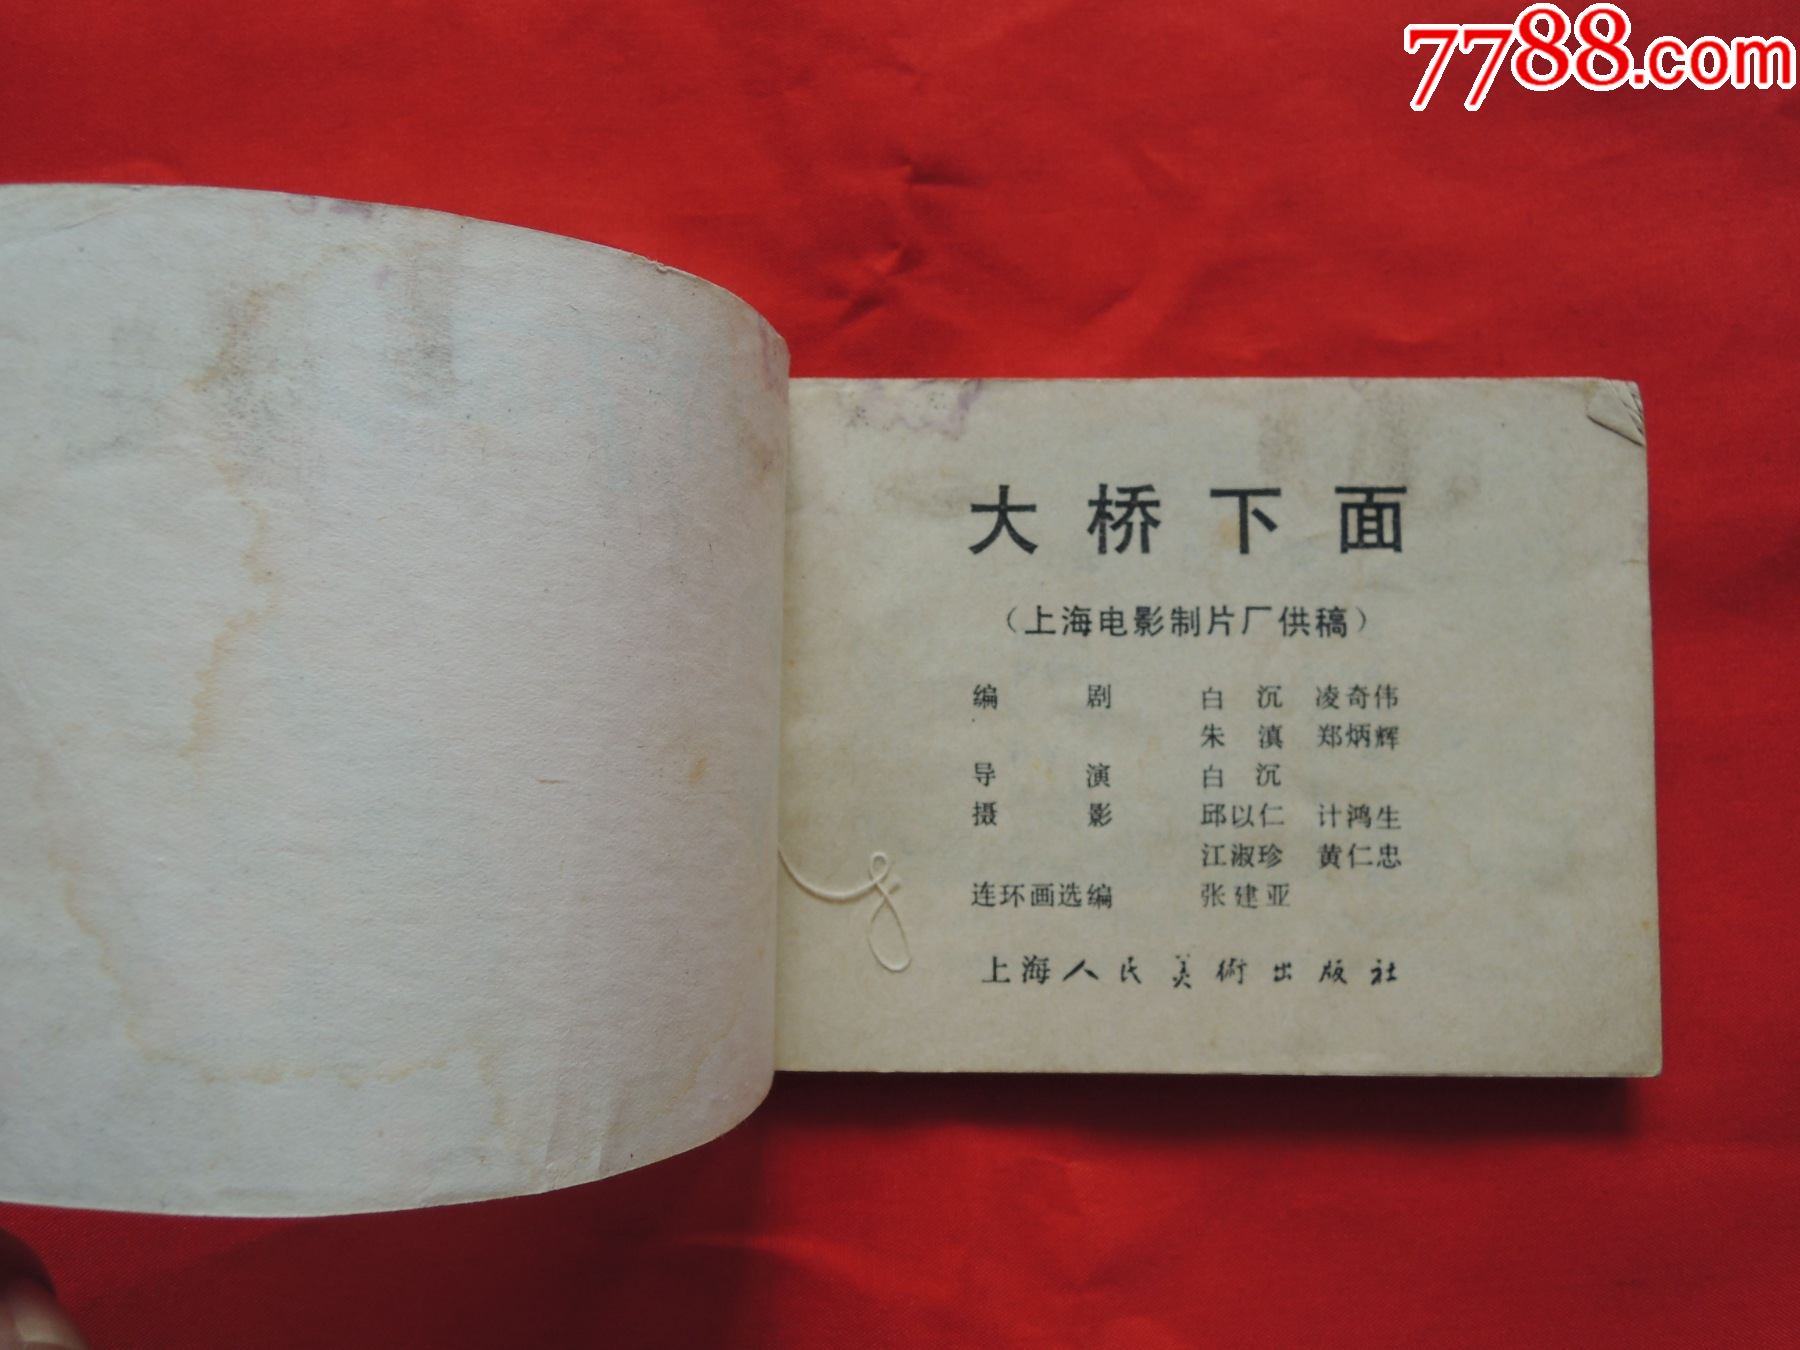 7788.com
大桥下面
（上海电影制片厂供稿）
编剧 白沉 凌奇伟
朱滇 郑炳辉
导演 白沉
摄影 邱以仁 计鸿生
江淑珍 黄仁忠
连环画选编 张建亚
上海人民美術出版社